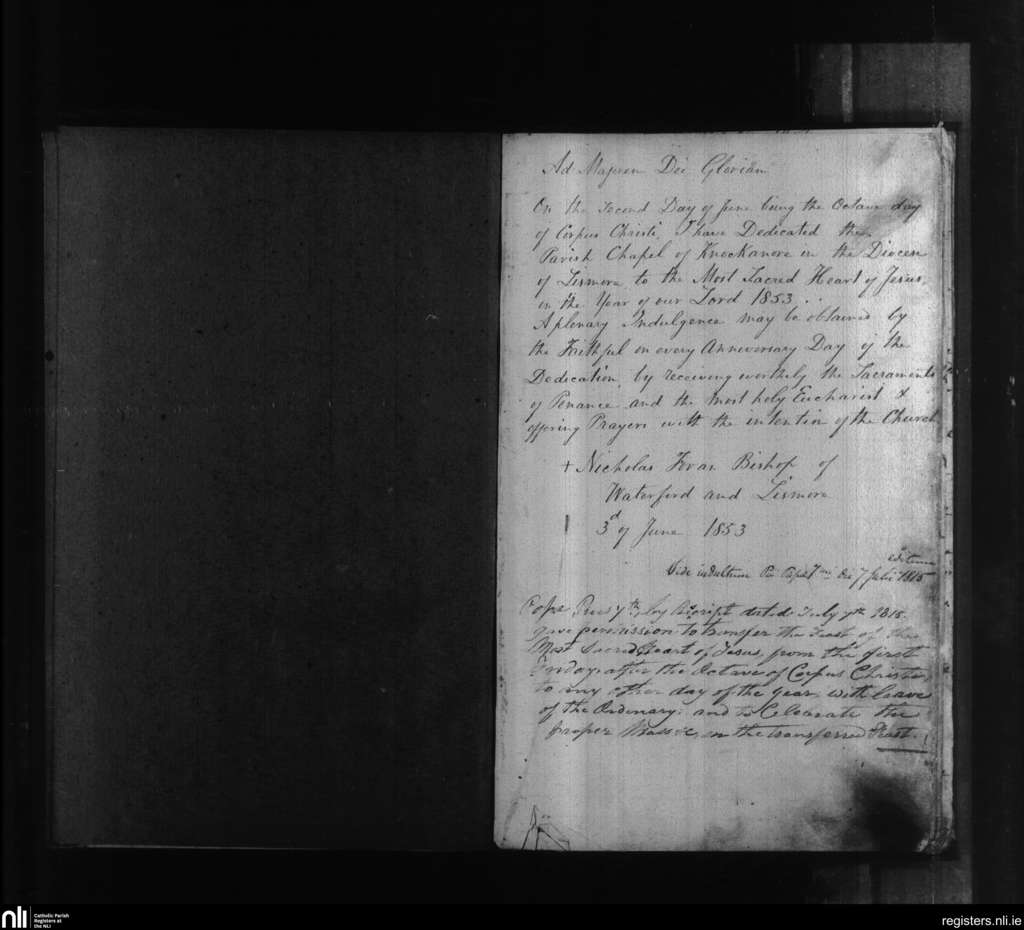 Ad Majorem Dei Gloriam
On the Second Day of June being the Octave day
of Corpus Christi I have Dedicated the
Parish Chapel of Knockanore in the Diocese
of Lismore, to the Most Sacred Heart of Jesus,
in the Year of our Lord 1853..
A plenary Indulgence may be obtained by
the Faithful on every Anniversary Day of the
Dedication, by receiving worthily the Sacraments
of Penance and the most holy Eucharist &
offering Prayers with the intention of the Church
+ Nicholas Foran Bishop of
Waterford and Lismore
3d of June 1853
editum
Vide indultum Pii Papae 7mi die 7 Julii 1815
Pope Pius 7th, by Rescript dated July 7th 1815.
gave permission to transfer the Feast of the
Most Sacred Heart of Jesus, from the first
Friday after the Octave of Corpus Christi,
to any other day of the year, with leave
of the Ordinary; and to Celebrate the
proper Mass &c, on the transferred Feast.
nli
Catholic Parish
Registers at
the NLI
registers.nli.ie